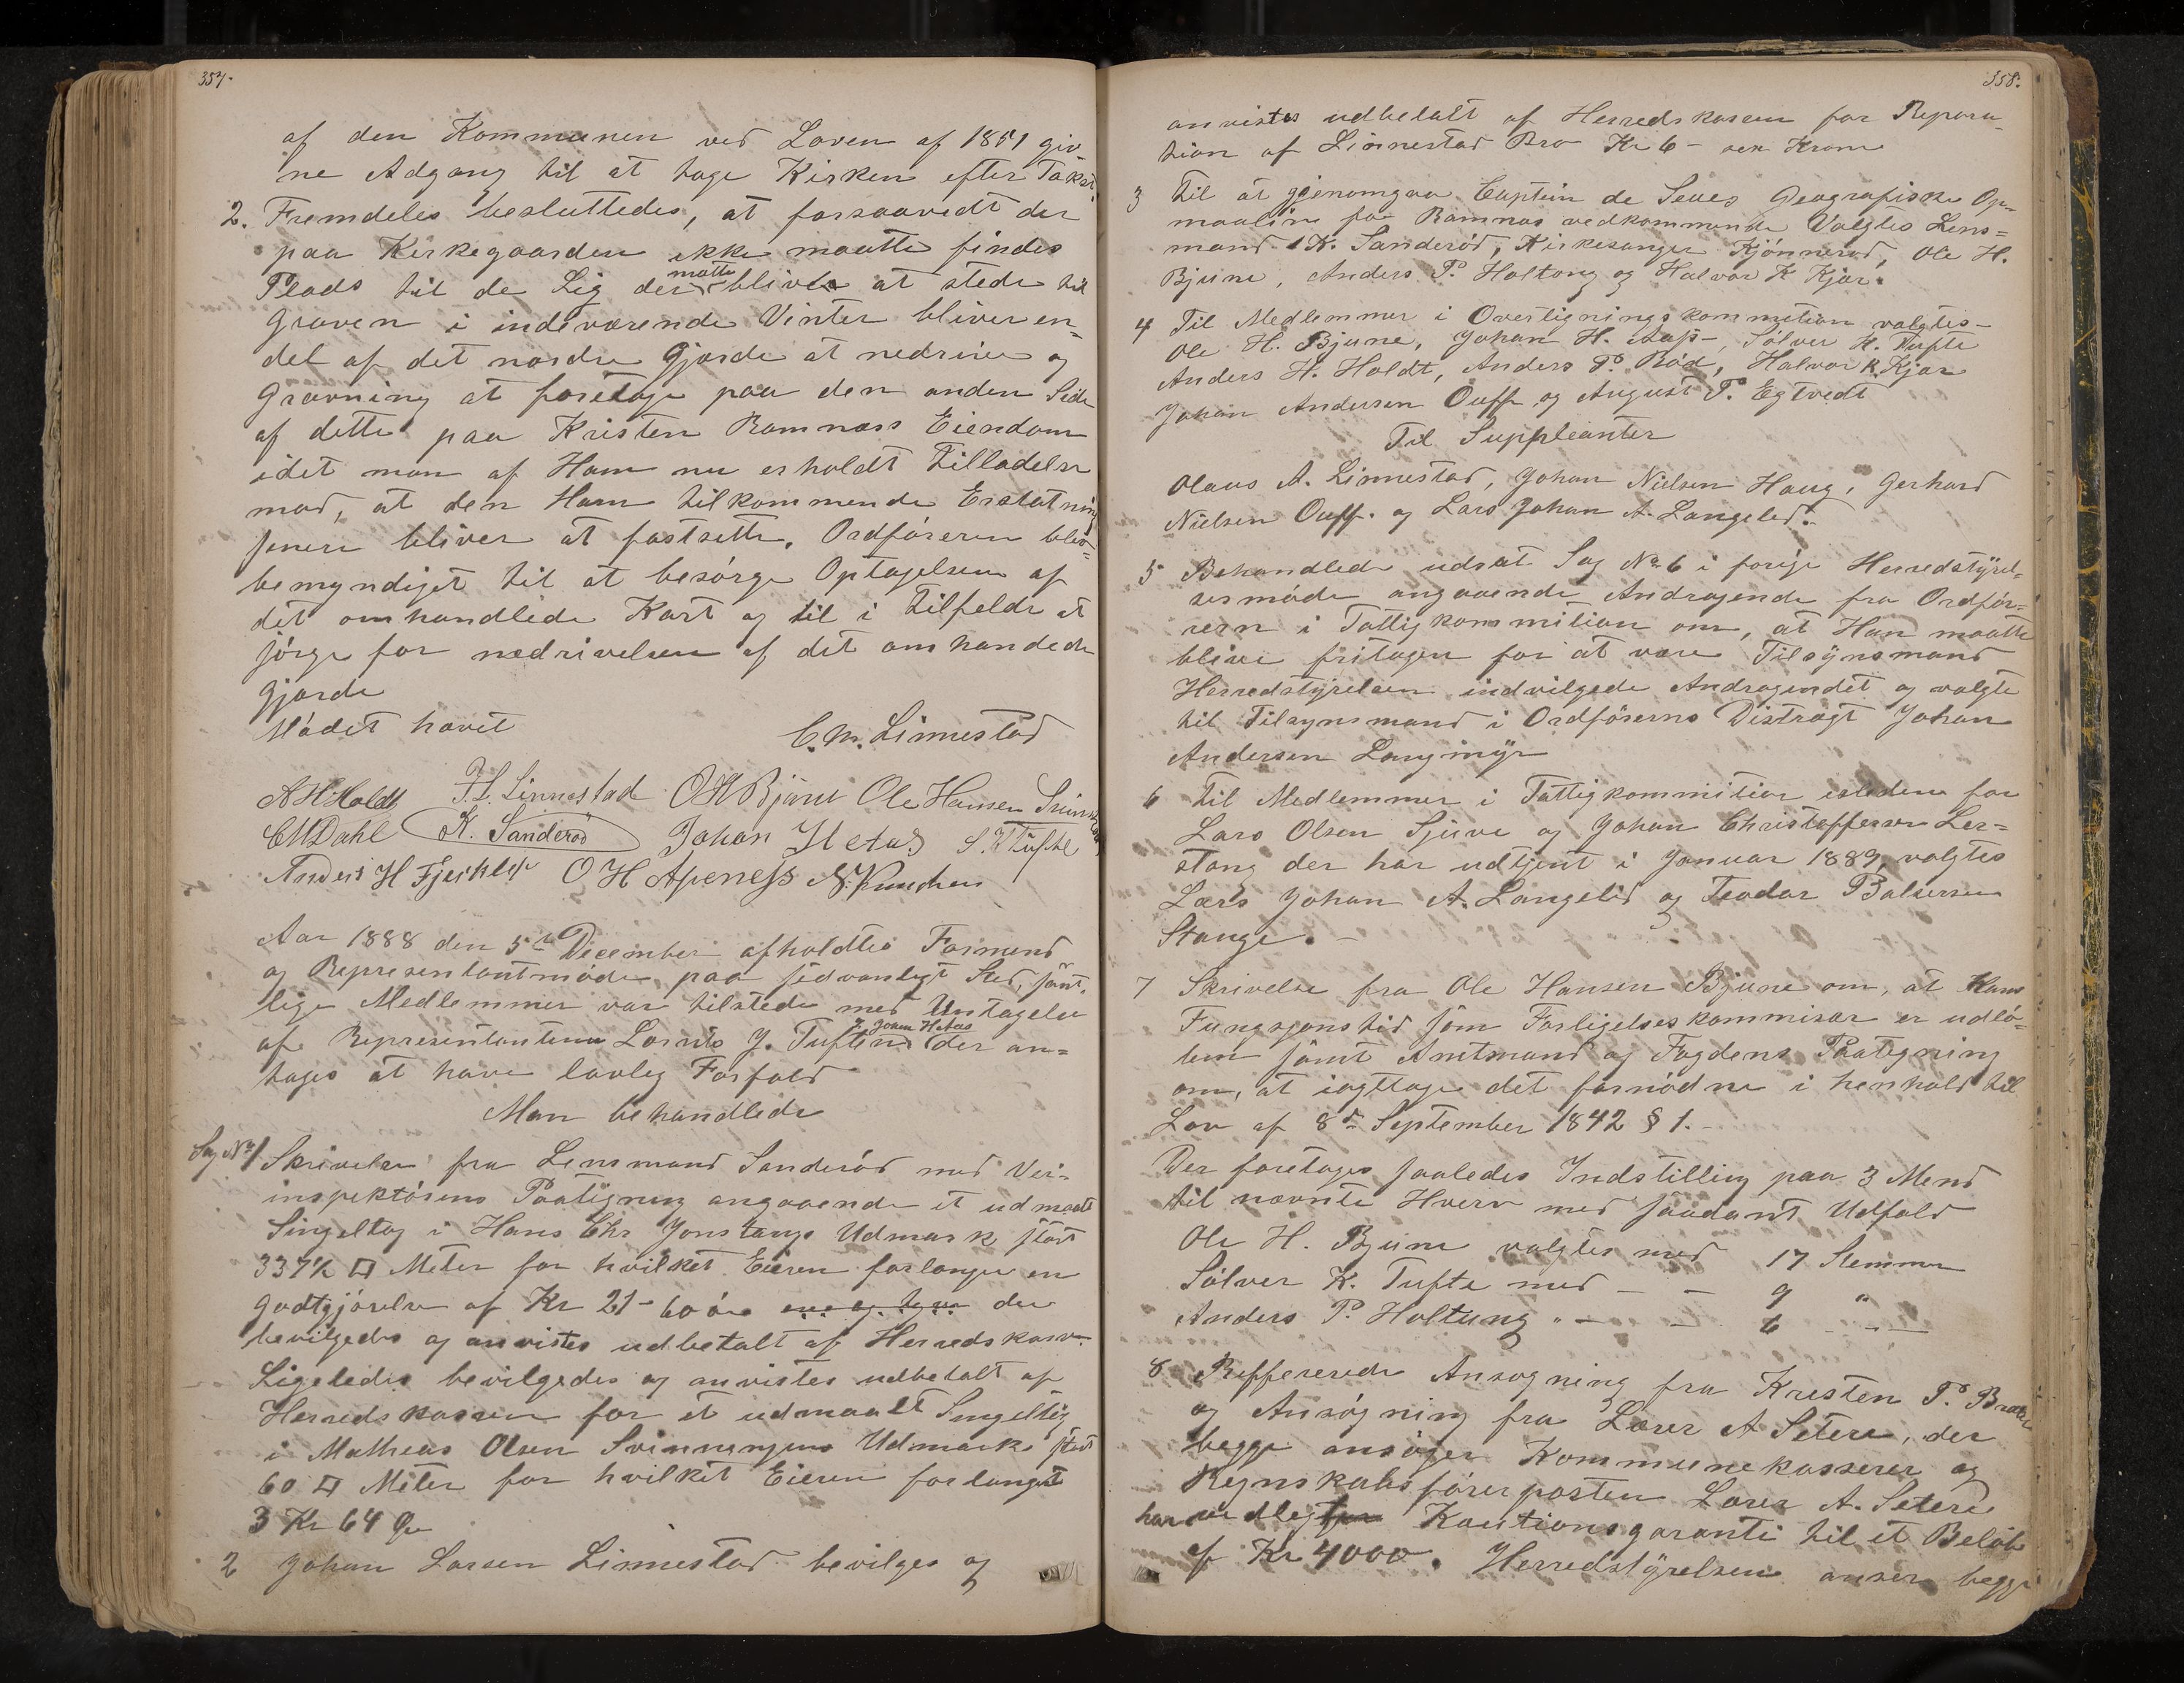 357.
af den Kommunen ved Loven af 1851 giv
ne Adgang til at tage Kirken efter Takst,
2. Fremdeles besluttedes, at forsaavidt der
paa Kirkegaarden ikke maatte findes
Plads til de Lig der matte blive at stede til
Graven i indeværende Vinter bliver en-
del af det nordre Gjærde at nedrive og
Gravning at foretage paa den anden Side
af dette paa Kristen Ramnæss Eiendom
idet man af Ham nu erholdt Tilladelse
mod, at den Ham tilkommende Erstatning
senere bliver at fastsætte. Ordføreren blev
bemyndiget til at besørge Optagelsen af
det omhandlede Kart og til i tilfelde at
sørge for nedrivelsen af det omhandede
Gjærde
Mødet hævet
C. M. Linnestad
A H Holdt J. L. Linnestad O H Bjune Ole Hansen
C M Dahl K. Sanderød Johan H Aas S. K Tufte
Anders H Fjerklep O H Apeness N. Knudsen
Aar 1888 den 5te December afholdtes Formend
og Representantmøde paa sedvanligt Sted, samt-
lige Medlemmer var tilstede med Untagelse
af Representanterne Lornts J. Tuften & Johan H Aas der an-
tages at have lovlig Forfald
Man behandlede
Sag No 1 Skrivelse fra Lensmand Sanderød med Vei-
inspektørens Paategning angaaende et udmaalt
Singeltag i Hans Chr Jonstangs Udmark stort
337½ □ Meter for hvilket Eieren forlanger en
Godtgjørelse af Kr 21- 60 øre der
bevilgedes og anvistes udbetalt af Herredskassen.
Ligeledes bevilgedes og anvistes udbetalt af
Herredskassen for et udmaalt Singeltag
i Matheas Olsen Svinnengens Udmark stort
60 □ Meter for hvilket Eieren forlangte
3 Kr 64 Øre
2 Johan Larsen Linnestad bevilges og
358.
anvistes udbetalt af Herredskassen for Repara-
tion af Linnestad Bro Kr 6 - sex Kroner
3 Til at gjenomgaa Captein de Seues Geografiske Op-
maaling for Ramnæs vedkommende Valgtes Lens=
mand K. Sanderød, Kirkesanger Kjønnerød, Ole H.
Bjune, Anders P. Holtung og Halvor K Kjær.
4 Til Medlemmer i Overligningskommition valgtes-
Ole H. Bjune, Johan H. Aas-, Sølver K. Tufte
Anders H. Holdt, Anders P. Rød, Halvor K. Kjær
Johan Andersen Ouff og August P. Egtvedt
Til Suppleanter
Olaus A. Linnestad, Johan Nielsen Haug, Gerhard
Nielsen Ouff. og Lars Johan A. Langelid.
5 Behandlede udsat Sag No 6 i forige Herredstyrel-
sesmøde angaaende Andragende fra Ordfør=
reren i Fattigkommition om, at Han maatte
blive fritagen for at være Tilsynsmand
Herredstyrelsen indvilgede Andragendet og valgte
til Tilsynsmand i Ordførerens Distragt Johan
Andersen Langmyr
6 Til Medlemmer i Fattigkommition istedenfor
Lars Olsen Sjuve og Johan Christoffersen Ler=
stang der har udtjent i Januar 1889, valgtes
Lars Johan A. Langelid og Teodor Baltersen
Stange. -
7 Skrivelse fra Ole Hansen Bjune om, at Hans
Fungsjonstid som Forligelseskommisær er udlø-
ben samt Amtmand og Fogdens Paategning
om, at iagttage det fornødne i henhold til
Lov af 8de September 1842 § 1. -
Der foretoges saaledes Indstilling paa 3 Mend
til nævnte Hverv med saadant Udfald
Ole H. Bjune valgtes med 17 Stemmer
Sølver K. Tufte med - - 9 "
Anders P. Holtung " - - 6 - -
8 Refferserede Ansøgning fra Kristen P. Bratte
og Ansøgning fra Lærer A Setere, der
begge ansøger Kommunekasserer og
Regnskabsførerposten Lærer A. Setere
har vedlegt Kautionsgaranti til et Beløb
af Kr 4000. Herredstyrelsen anser begge